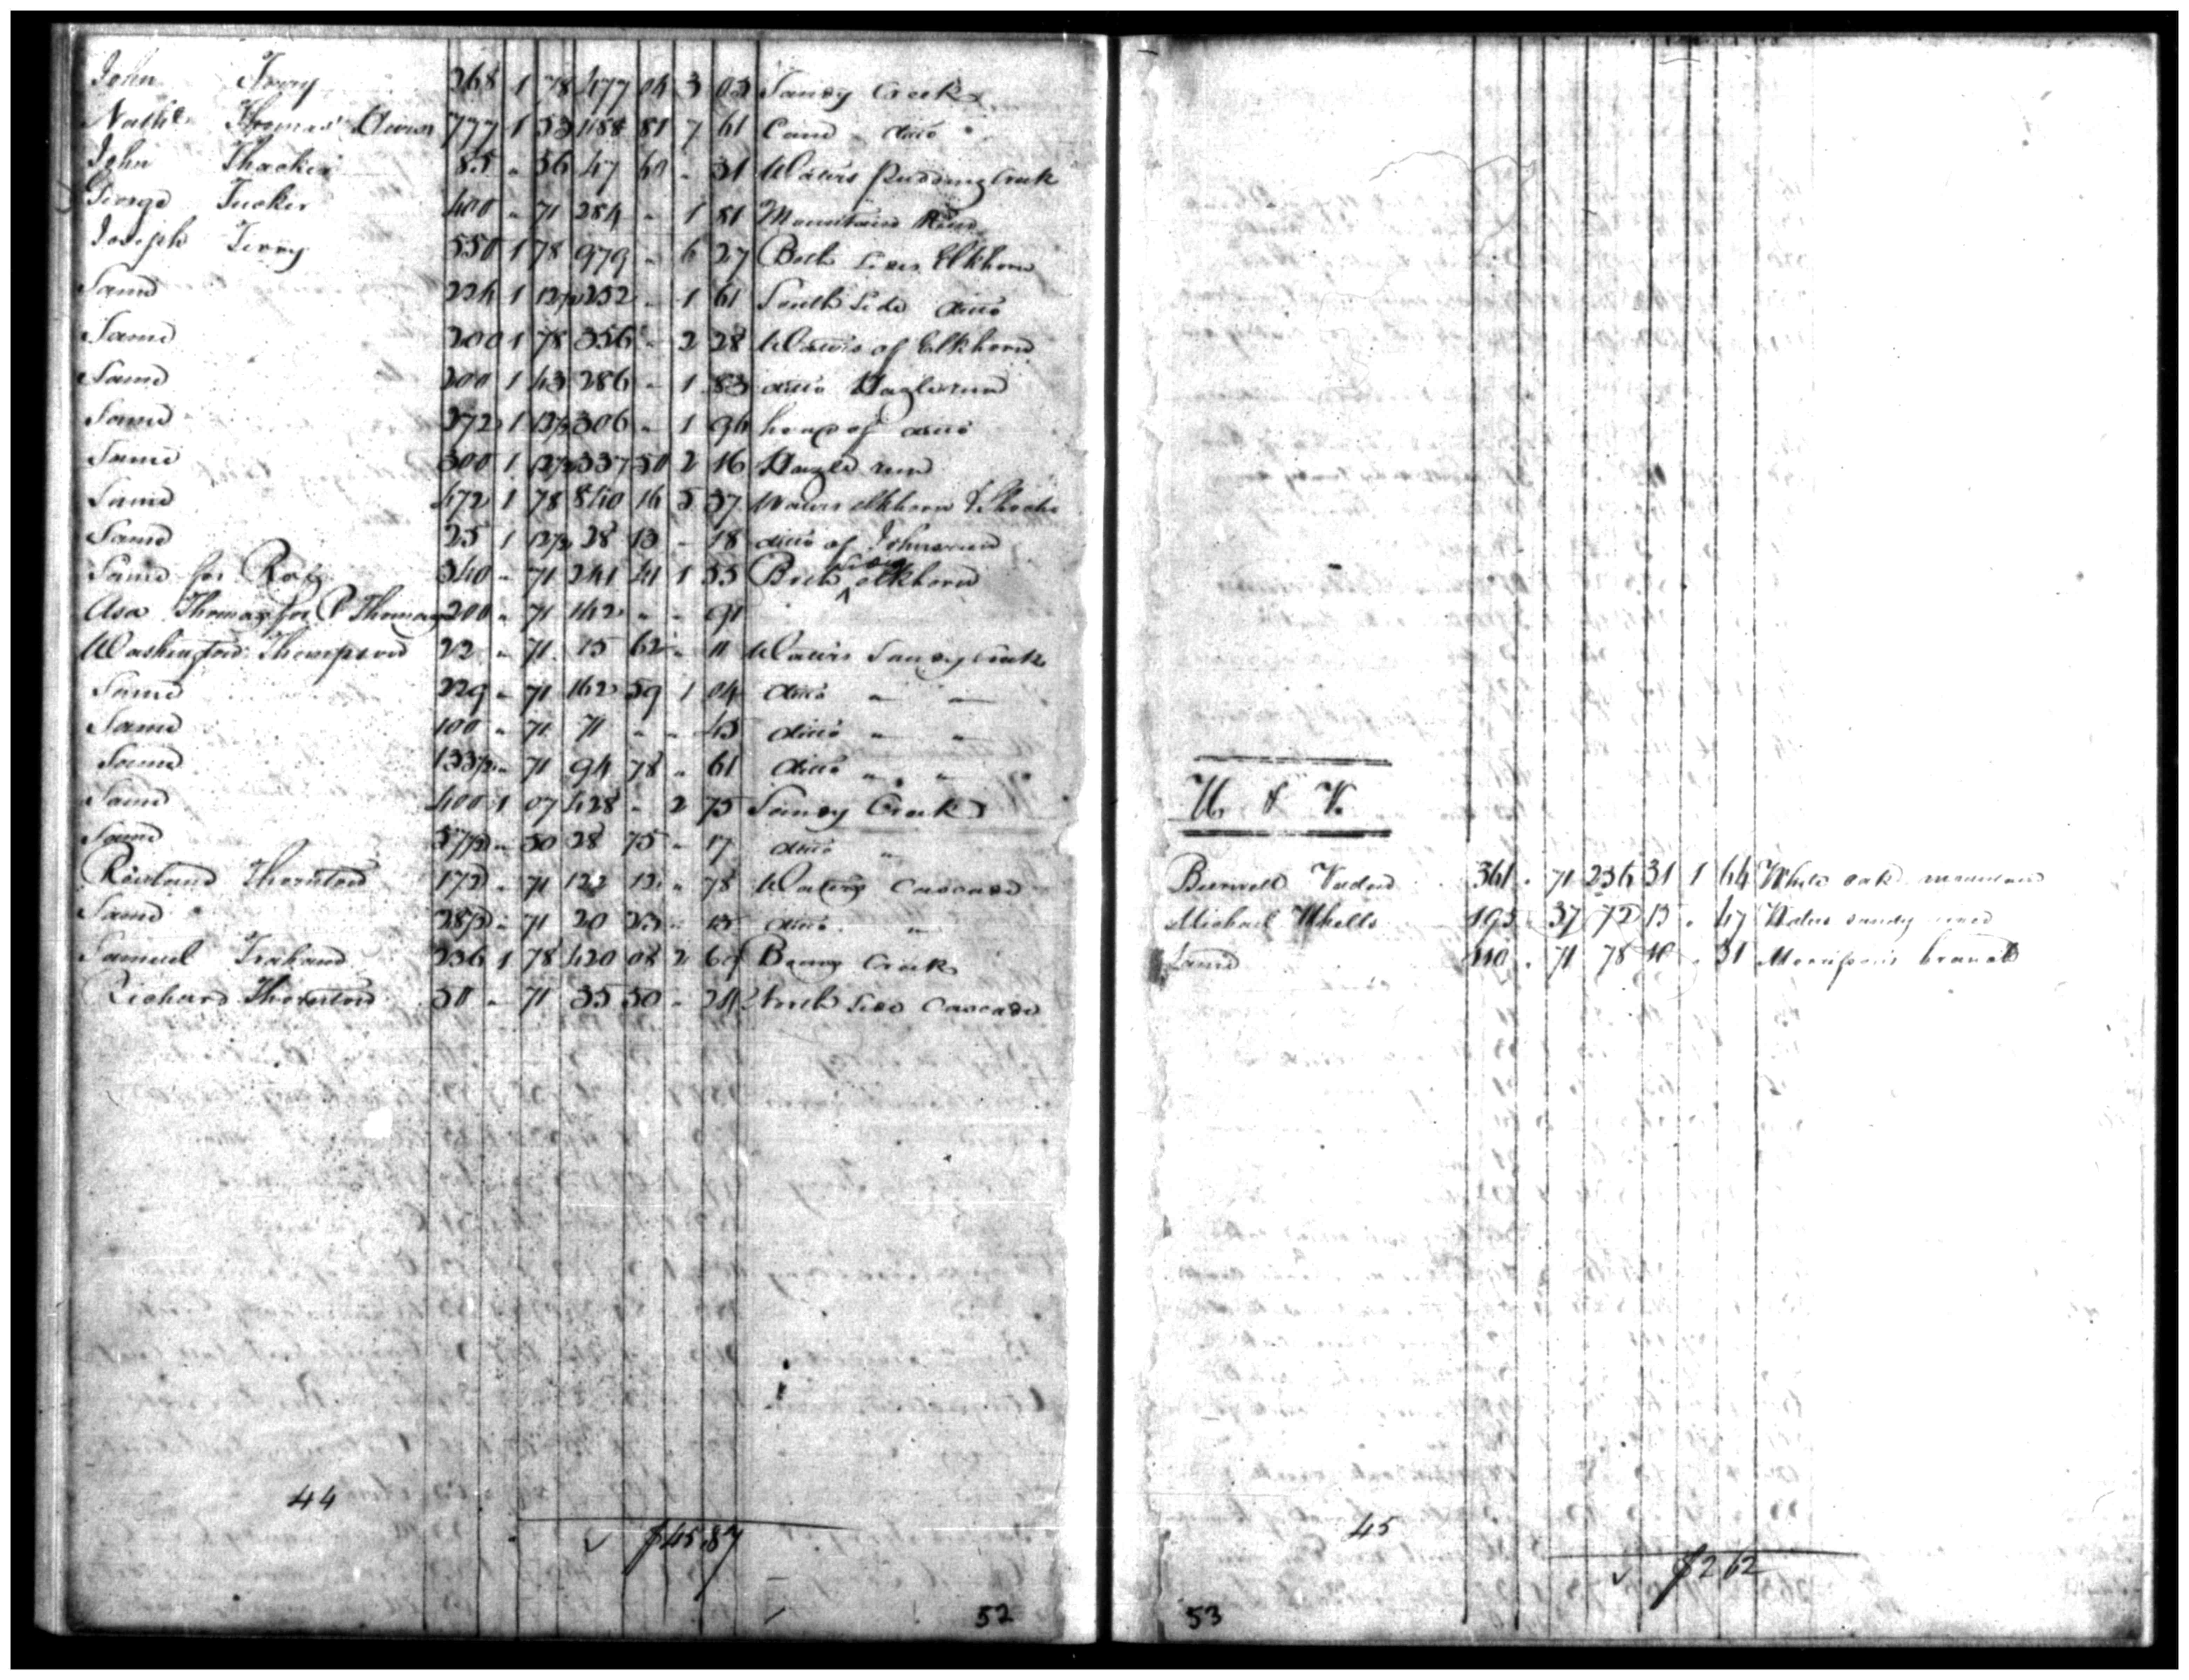 John Terry 268 1 78 477 04 3 05 Sandy Creek
Nathl Thomas 777 1 53 1188 81 7 61 Cane ditto
John Thacker 85 " 56 47 60 " 31 Waters Pudding Creek
George Tucker 400 " 71 284 " 1 81 Mountain Run
Joseph Terry 550 1 78 979 " 6 27 Both Sides Elkhorn
Same 224 1 12½ 252 " 1 61 South Side ditto
Same 200 1 78 356 " 2 28 Waters of Elkhorn
Same 200 1 43 286 " 1 83 ditto
Same 272 1 12½ 306 " 1 96 head of ditto
Same 300 1 12½ 337 50 2 16 run
Same 472 1 78 840 16 5 37 Waters elkhorn &
Same 25 1 12½ 28 13 " 18 ditto of Johns run
Same for 340 " 71 241 41 1 55 Both sides elkhorn
Asa Thomas for P Thomas 200 " 71 142 " " 91
Washington Thompson 22 " 71 15 62 " 11 Waters Sandy Creek
Same 229 " 71 162 59 1 04 ditto " "
Same 100 " 71 71 " " 45 ditto " "
Same 133½ " 71 94 78 " 61 ditto " "
Same 400 1 07 428 " 2 75 Sandy Creek
Same 57½ " 50 28 75 " 17 ditto "
Rowland Thornton 172 " 71 122 12 " 78 Waters Cascade
Same 28½ " 71 20 23 " 13 ditto "
Samuel 236 1 78 420 08 2 69 Creek
Richard Thornton 50 " 71 35 50 " 24 North Side Cascade
44
$45.87
52
U & V.
Burwell Vaden 361 " 71 256 31 1 64 White oak mountain
Michael 195 " 37 72 15 " 47 Waters sandy
Same 110 " 71 78 10 " 51 branch
45
$2 62
53